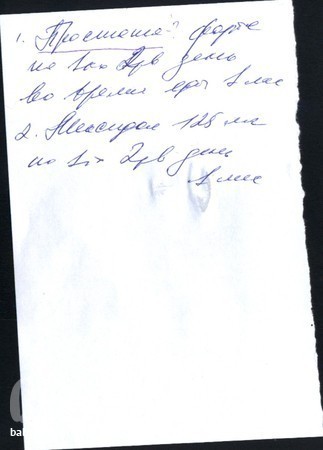 1. Простата? форте
по 1ка 2р в день
во время еды 1 мес
2. Мексидол 125 мг
по 1т 2р в день
1 мес
bal